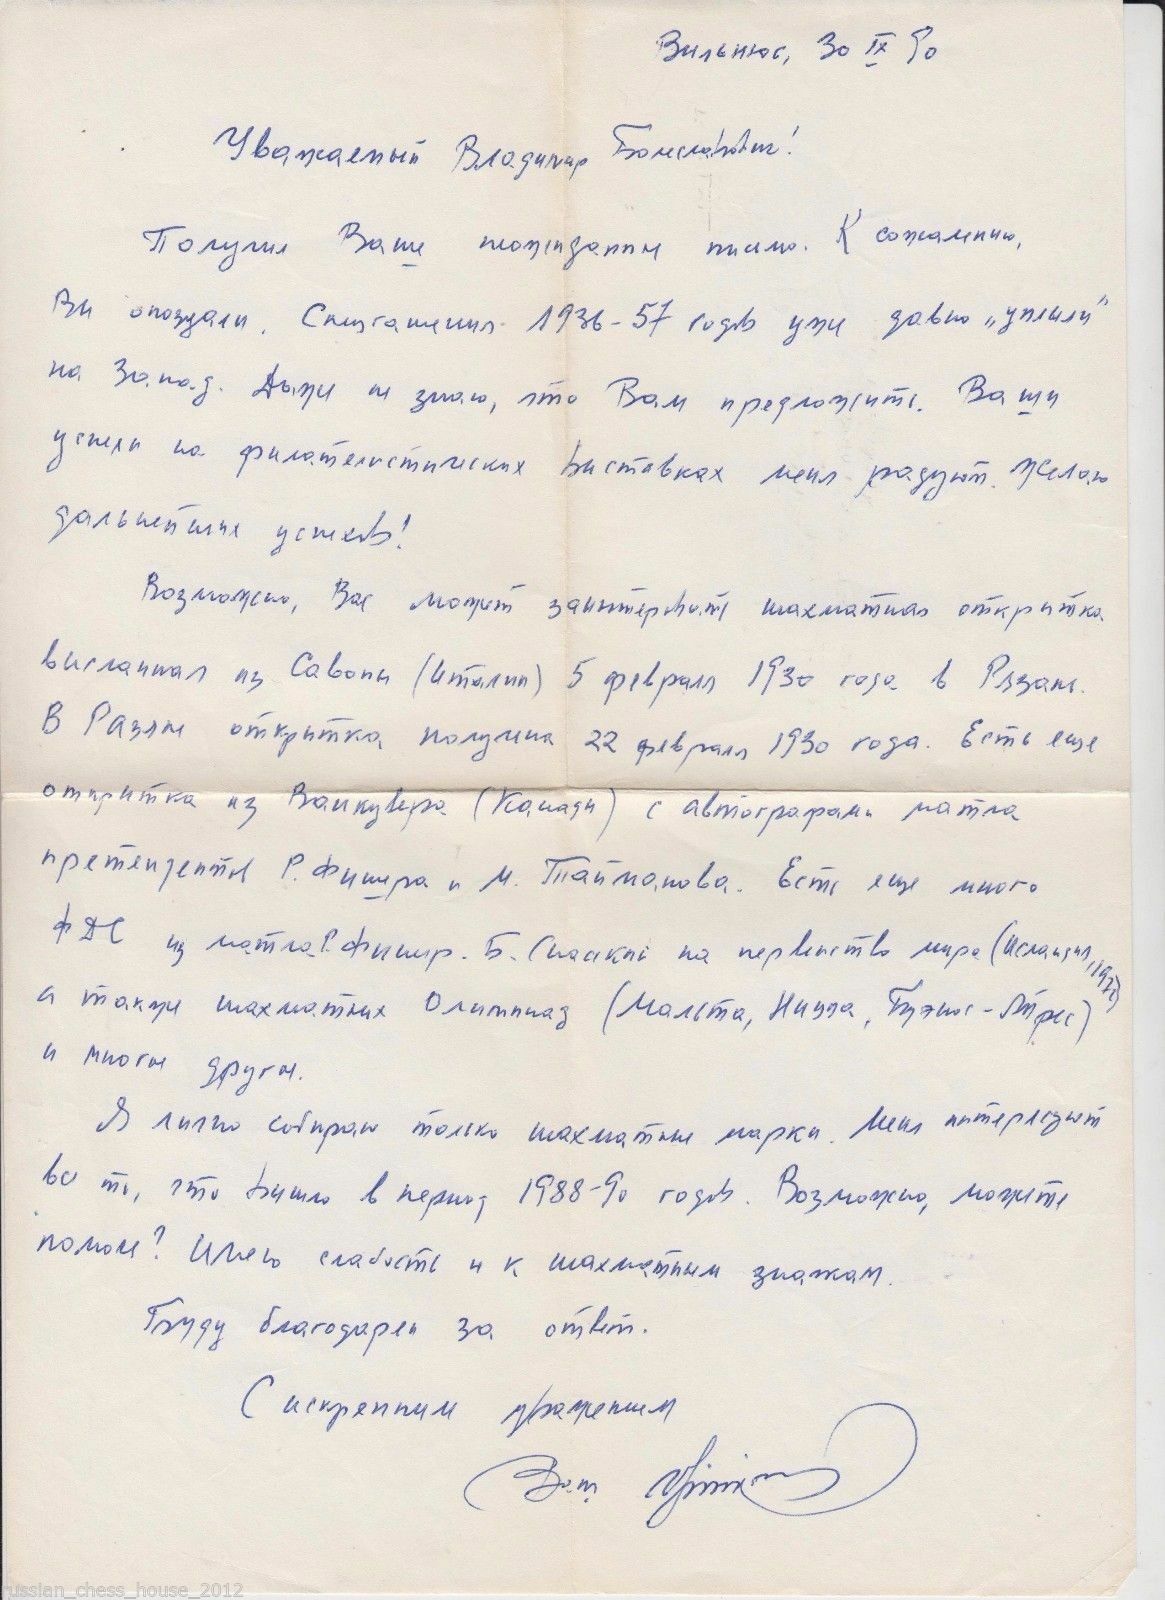 Вильнюс, 30 IX 90
Уважаемый Владимир Болеславович!
Получил Ваше неожиданное письмо. К сожалению,
Вы опоздали. Спецгашения 1936-57 годов уже давно „уплыли"
на Запад. Даже не знаю, что Вам предложить. Ваши
успехи на филателистических выставках меня радуют. Желаю
дальнейших успехов!
Возможно, Вас может заинтересовать шахматная открытка
высланная из Савоны (Италии) 5 февраля 1930 года в Рязань.
В Рязане открытка получена 22 февраля 1930 года. Есть еще
открытка из Ванкувера (Канады) с автографами матча
претендентов Р. Фишера и М. Тайманова. Есть еще много
ФДС из матча Р. Фишер - Б. Спасский на первенство мира (Исландия, 1972)
а также шахматных Олимпиад (Мальта, Ницца, Буэнос-Айрес)
и многое другое.
Я лично собираю только шахматные марки. Меня интересуют
всё то, что вышло в период 1988-90 годов. Возможно, можете
помочь? Имею слабость и к шахматным значкам.
Буду благодарен за ответ.
С искренним уважением
Ваш
russian_chess_house_2012